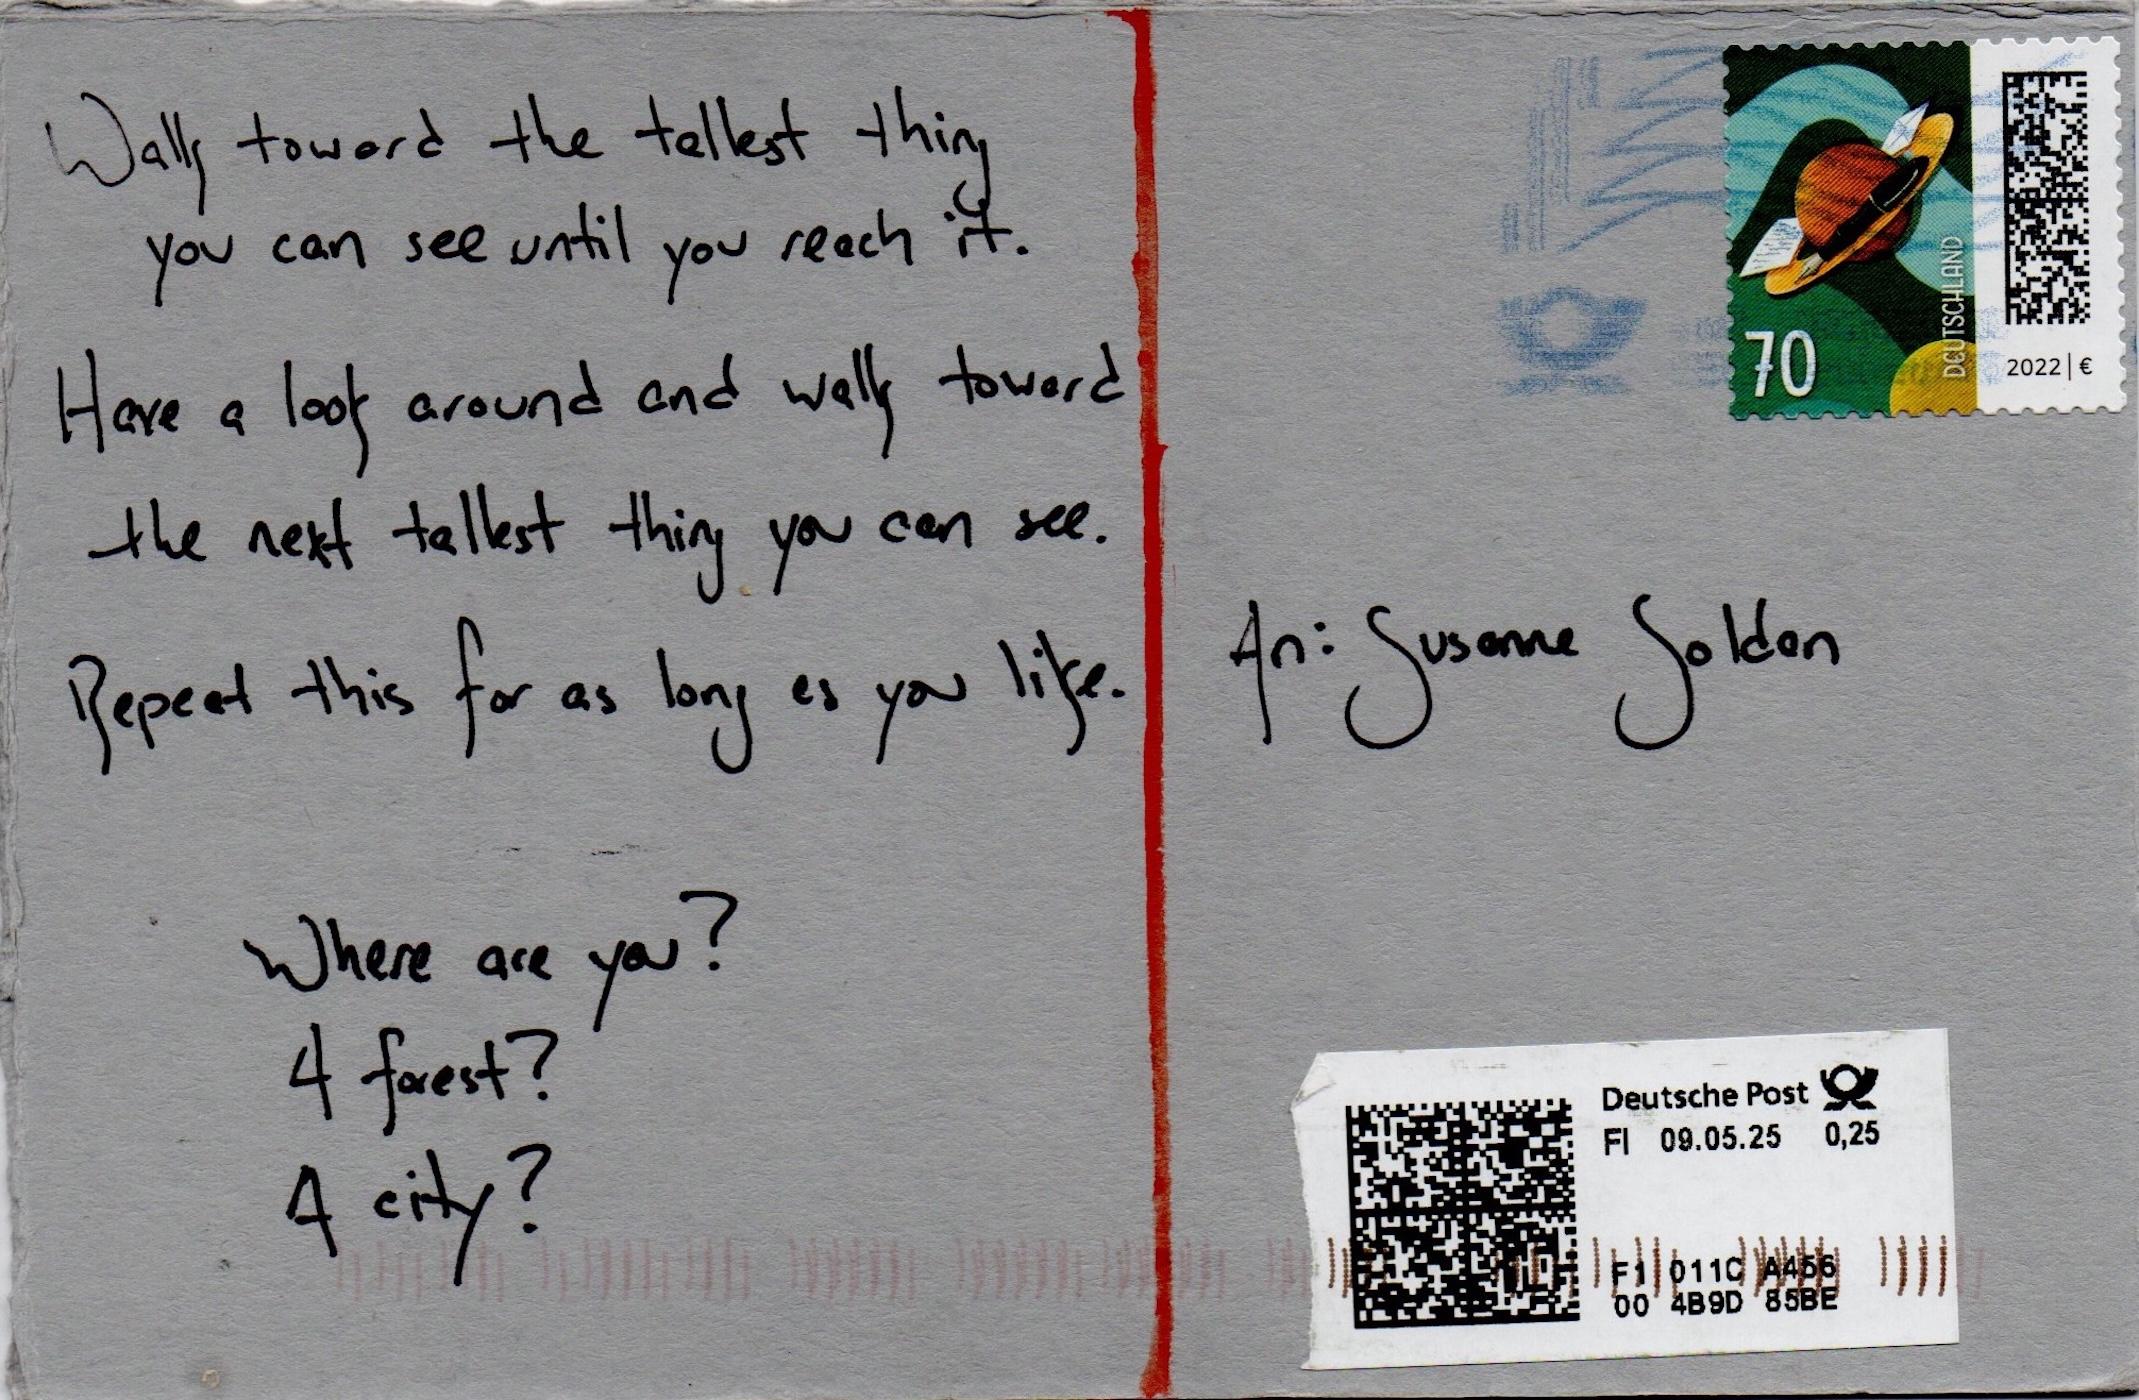 Walk toward the tallest thing
you can see until you reach it.
Have a look around and walk toward
the next tallest thing you can see.
Repeat this for as long as you like.
Where are you?
A forest?
A city?
70
DEUTSCHLAND
2022 | €
An: Susanne Soldan
Deutsche Post
FI 09.05.25 0,25
F1 011C A456
00 4B9D 85BE